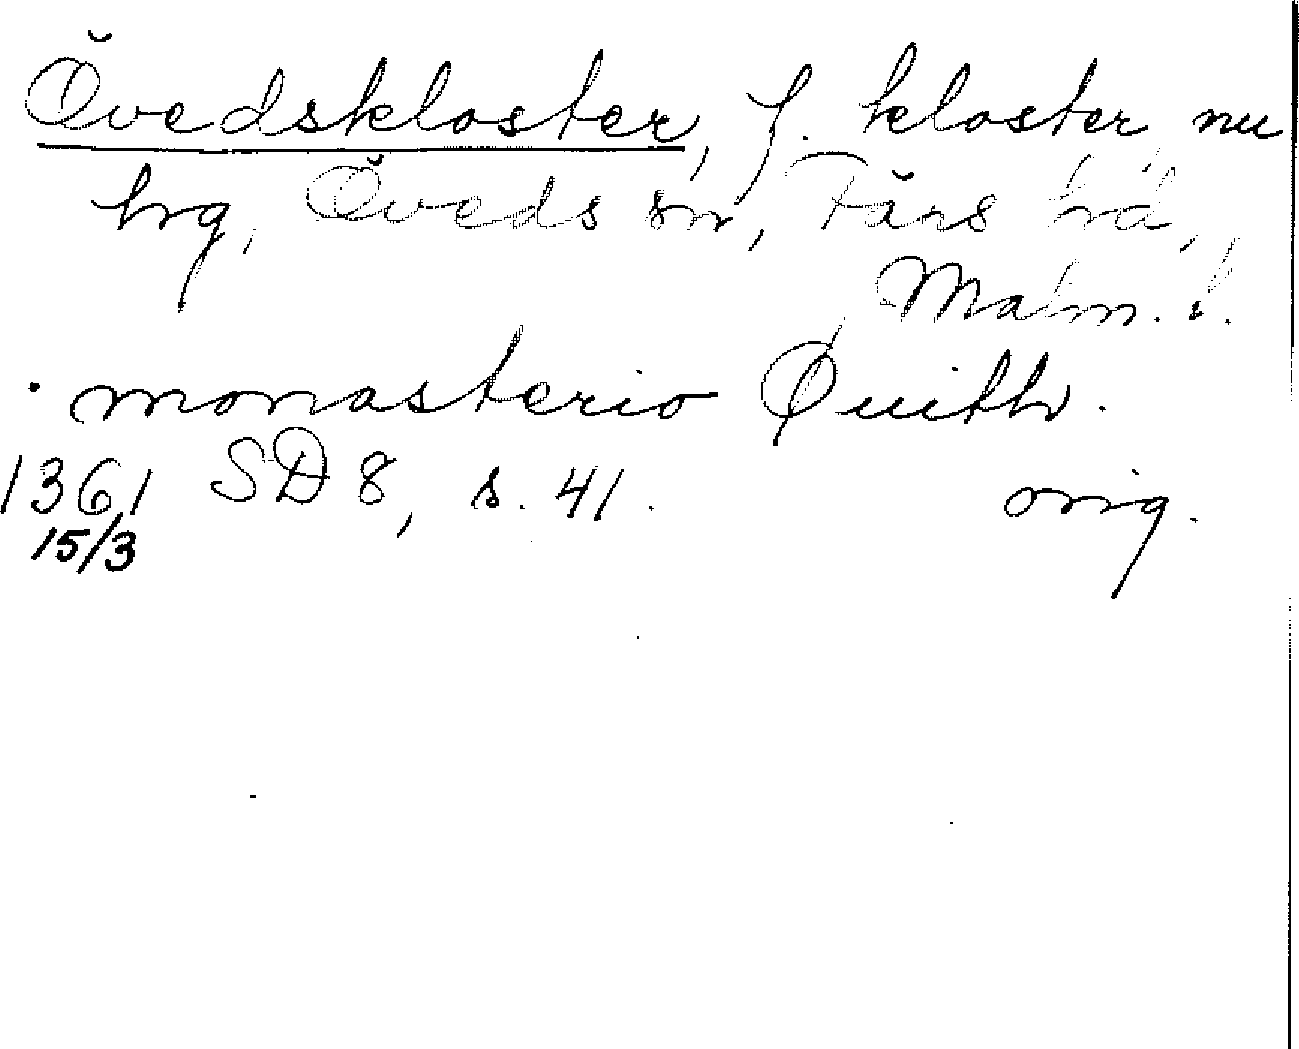 Övedskloster, f. kloster, nu
hrg, Öveds sn, Färs hd,
Malm. l.
· monasterio Øuith.
1361 SD 8, s. 41. orig.
15/3